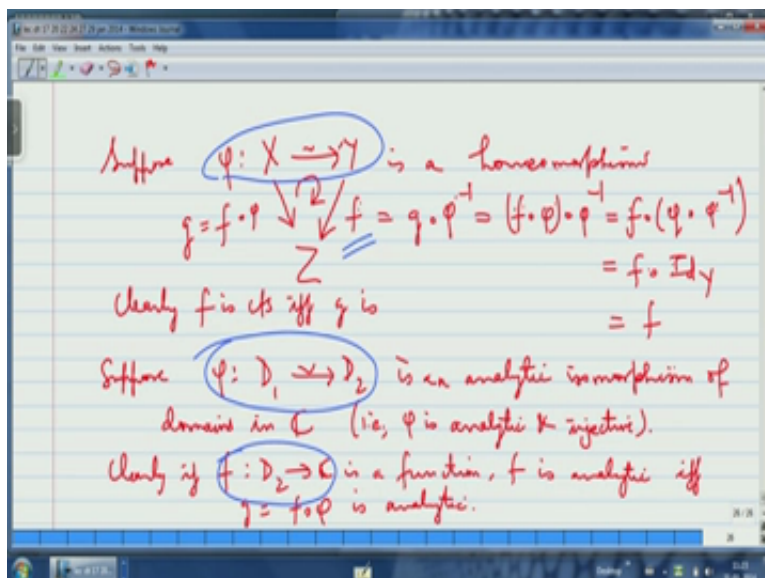 lec dt 17 20 22 24 27 29 jan 2014 - Windows Journal
File Edit View Insert Actions Tools Help
Suppose φ: X ⥲ Y is a homeomorphism
g = f∘φ f = g∘φ⁻¹ = (f∘φ)∘φ⁻¹ = f∘(φ∘φ⁻¹)
Z = f∘Id_Y
Clearly f is cts iff g is = f
Suppose φ: D₁ ⥲ D₂ is an analytic isomorphism of
domains in ℂ (i.e, φ is analytic & injective).
Clearly if f: D₂ → ℂ is a function, f is analytic iff
g = f∘φ is analytic.
26 / 26
26
Desktop